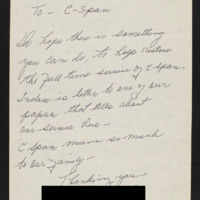 To - C-Span
Do hope there is something
you can do, to help restore
the full time service of C span.
Inclose is letter to one of our
papers that tells about
our service here -
C span means so much
to our family -
Thanking you -